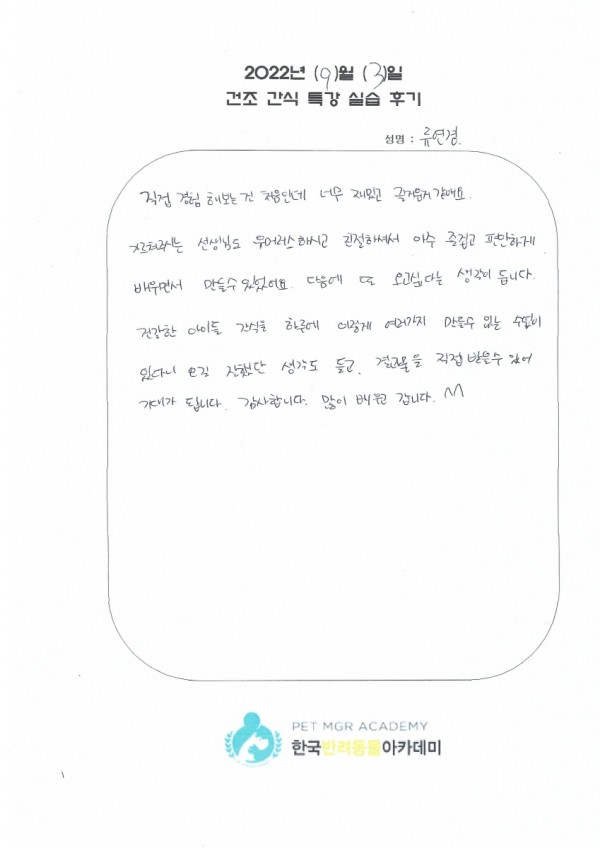 2022년 (9)월 (3)일
건조 간식 특강 실습 후기
성명 : 류연경.
직접 경험 해보는건 처음인데 너무 재밌고 즐거운거 같애요.
가르쳐주시는 선생님도 유머러스하시고 친절하셔서 아주 즐겁고 편안하게
배우면서 만들수 있었어요. 다음에 또 오고싶다는 생각이 듭니다.
건강한 아이들 간식을 하루에 이렇게 여러가지 만들수 있는 수업이
있다니 오길 잘했단 생각도 들고, 결과물을 직접 받을수 있어
기대가 됩니다. 감사합니다. 많이 배우고 갑니다. ^^
PET MGR ACADEMY
한국반려동물아카데미